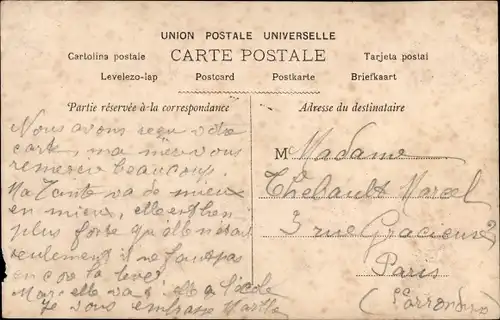 UNION POSTALE UNIVERSELLE
Cartolina postale CARTE POSTALE Tarjeta postal
Levelezo-lap Postcard Postkarte Briefkaart
Partie réservée à la correspondance
Nous avons reçu votre
carte, ma mère vous
remercie beaucoup.
Ma Tante va de mieux
en mieux, elle est bien
plus forte qu'elle n'était
seulement il ne faut pas
encore la lever
Marcelle va à l'école
Je vous embrasse Marthe
Adresse du destinataire
M Madame
Thébault Marcel
3 rue Gracieuse
Paris